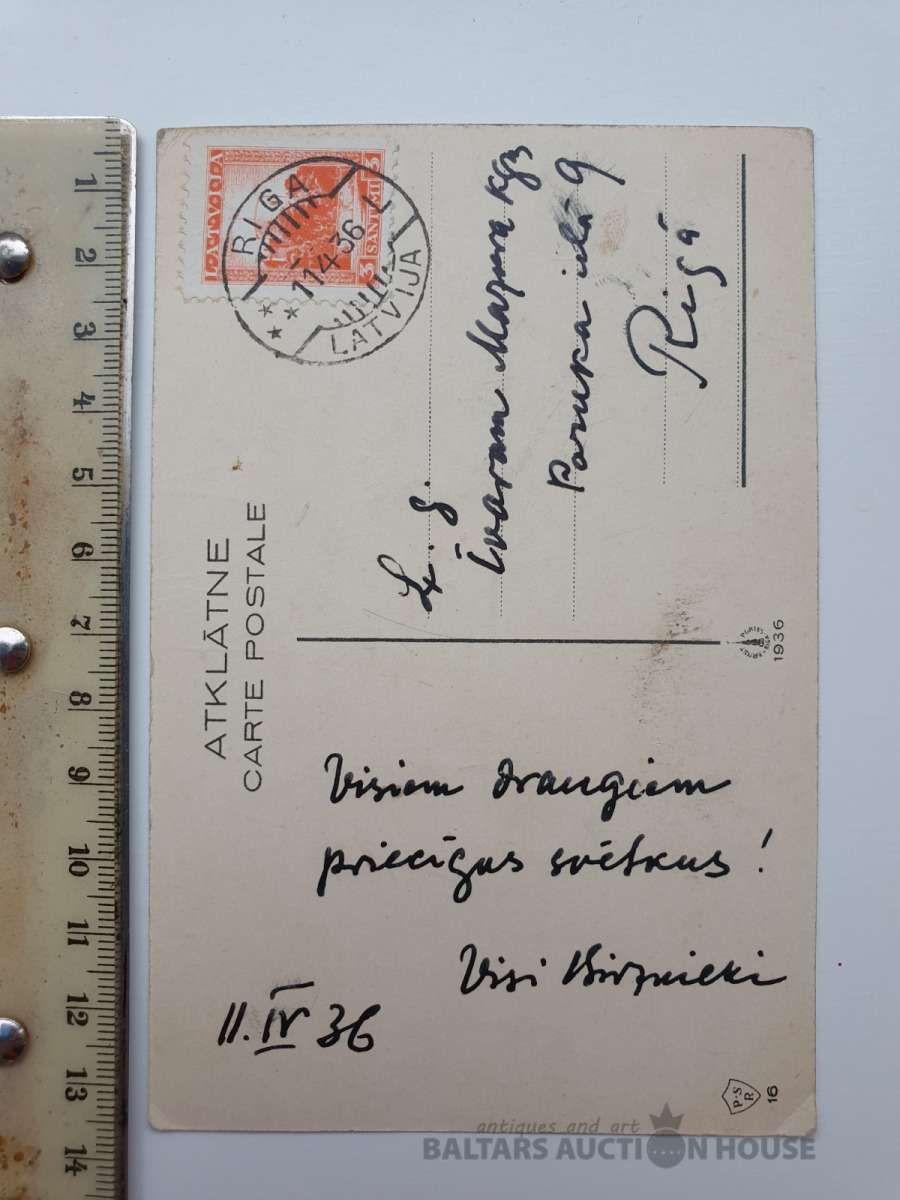 ATKLĀTNE
CARTE POSTALE
LATVIJA
3 SANTIMI 3
RIGA
11 4 36
LATVIJA
L. g.
Ivaram Mazura kgz
Poruka ielā 9
Rīgā
Visiem draugiem
priecīgus svētkus!
Visi Birznieki
11. IV 36
1936
P.S
R
16
1
2
3
4
5
6
7
8
9
10
11
12
13
14
antiques and art
BALTARS AUCTION HOUSE